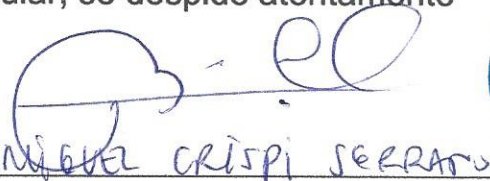 se despide atentamente
MIGUEL CRISPI SERRANO